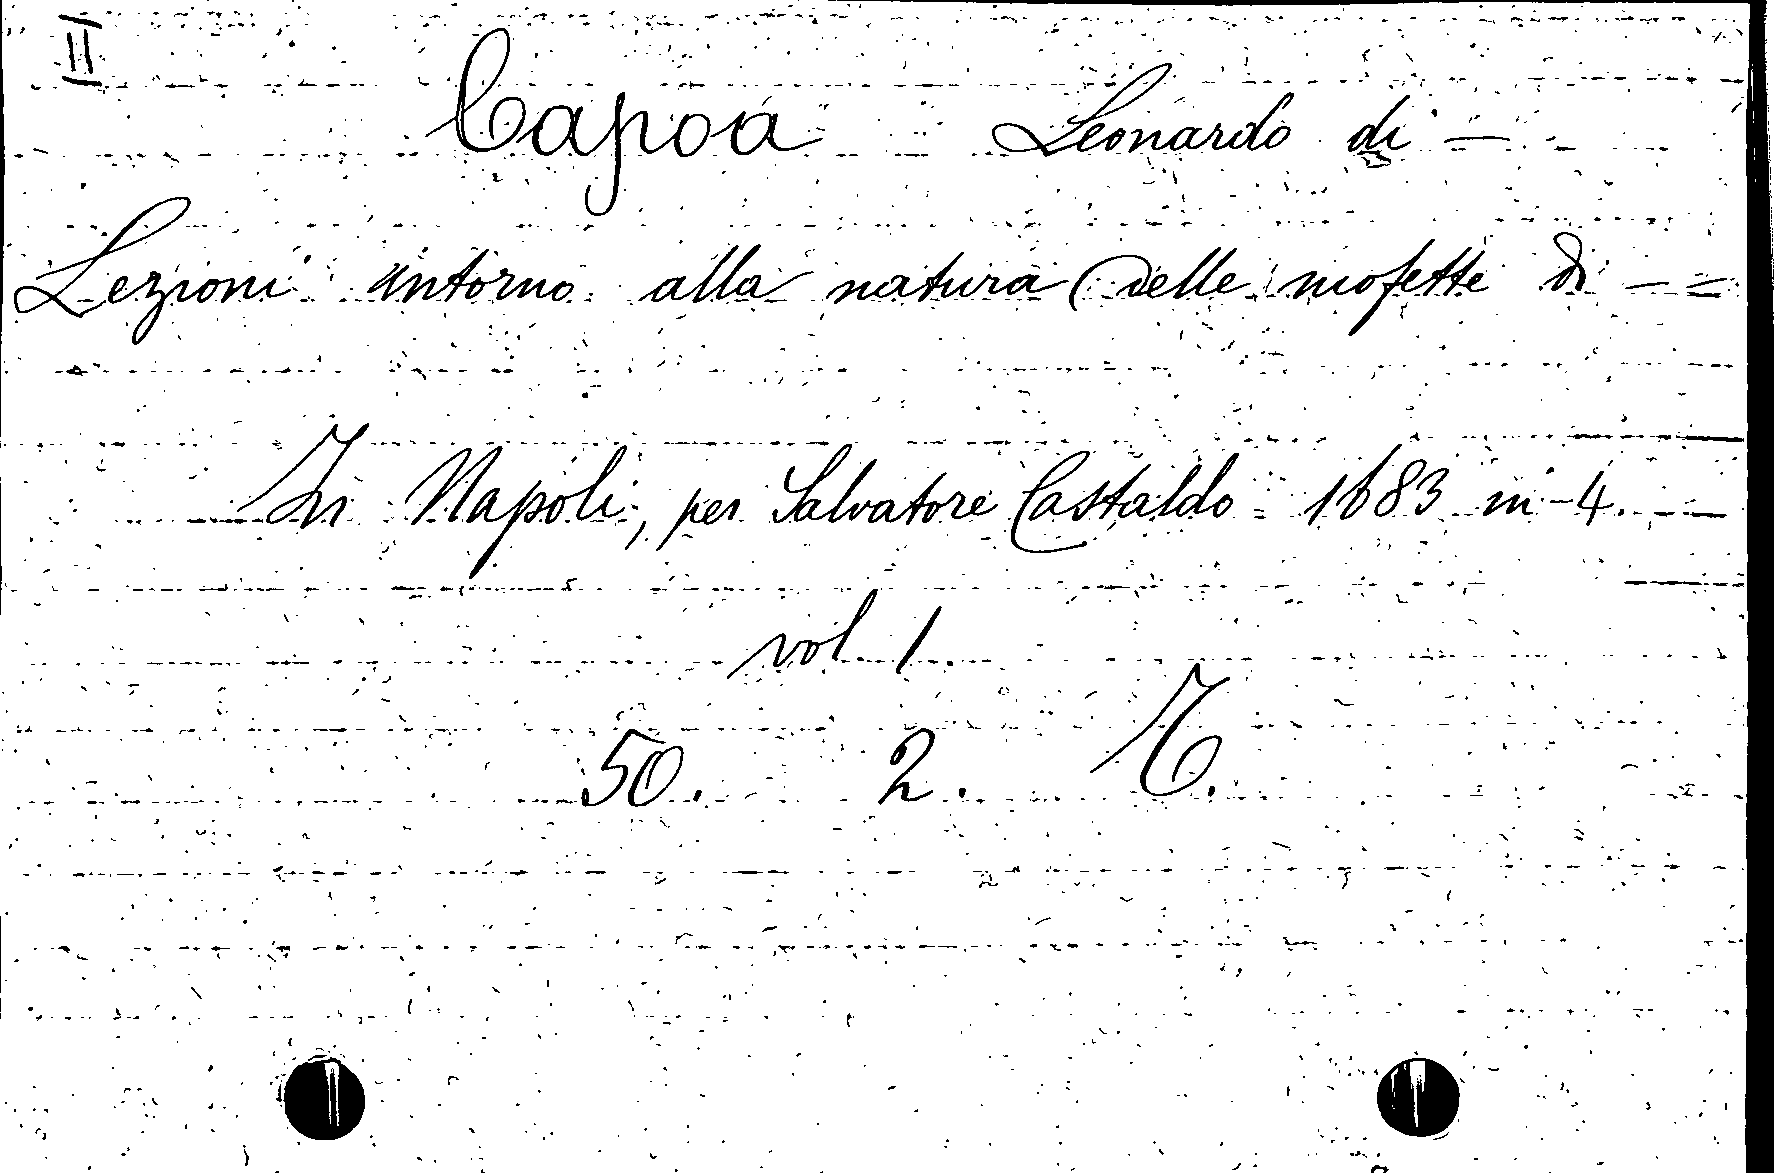 II
Capoa Leonardo di —
Lezioni intorno alla natura delle mofette di — =
In Napoli, per Salvatore Castaldo 1683 in-4. —
vol 1.
50. 2.